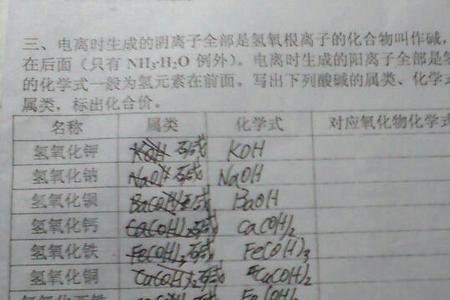 三、电离时生成的阴离子全部是氢氧根离子的化合物叫作碱，
在后面（只有 NH₃·H₂O 例外）。电离时生成的阳离子全部是氢
的化学式一般为氢元素在前面。写出下列酸碱的属类、化学式
属类，标出化合价。
名称 属类 化学式 对应氧化物化学式
氢氧化钾 KOH 碱 KOH
氢氧化钠 NaOH 碱 NaOH
氢氧化钡 碱 BaOH
氢氧化钙 Ca(OH)₂ 碱 Ca(OH)₂
氢氧化铁 Fe(OH)₃ 碱 Fe(OH)₃
氢氧化铜 Cu(OH)₂ 碱 Cu(OH)₂